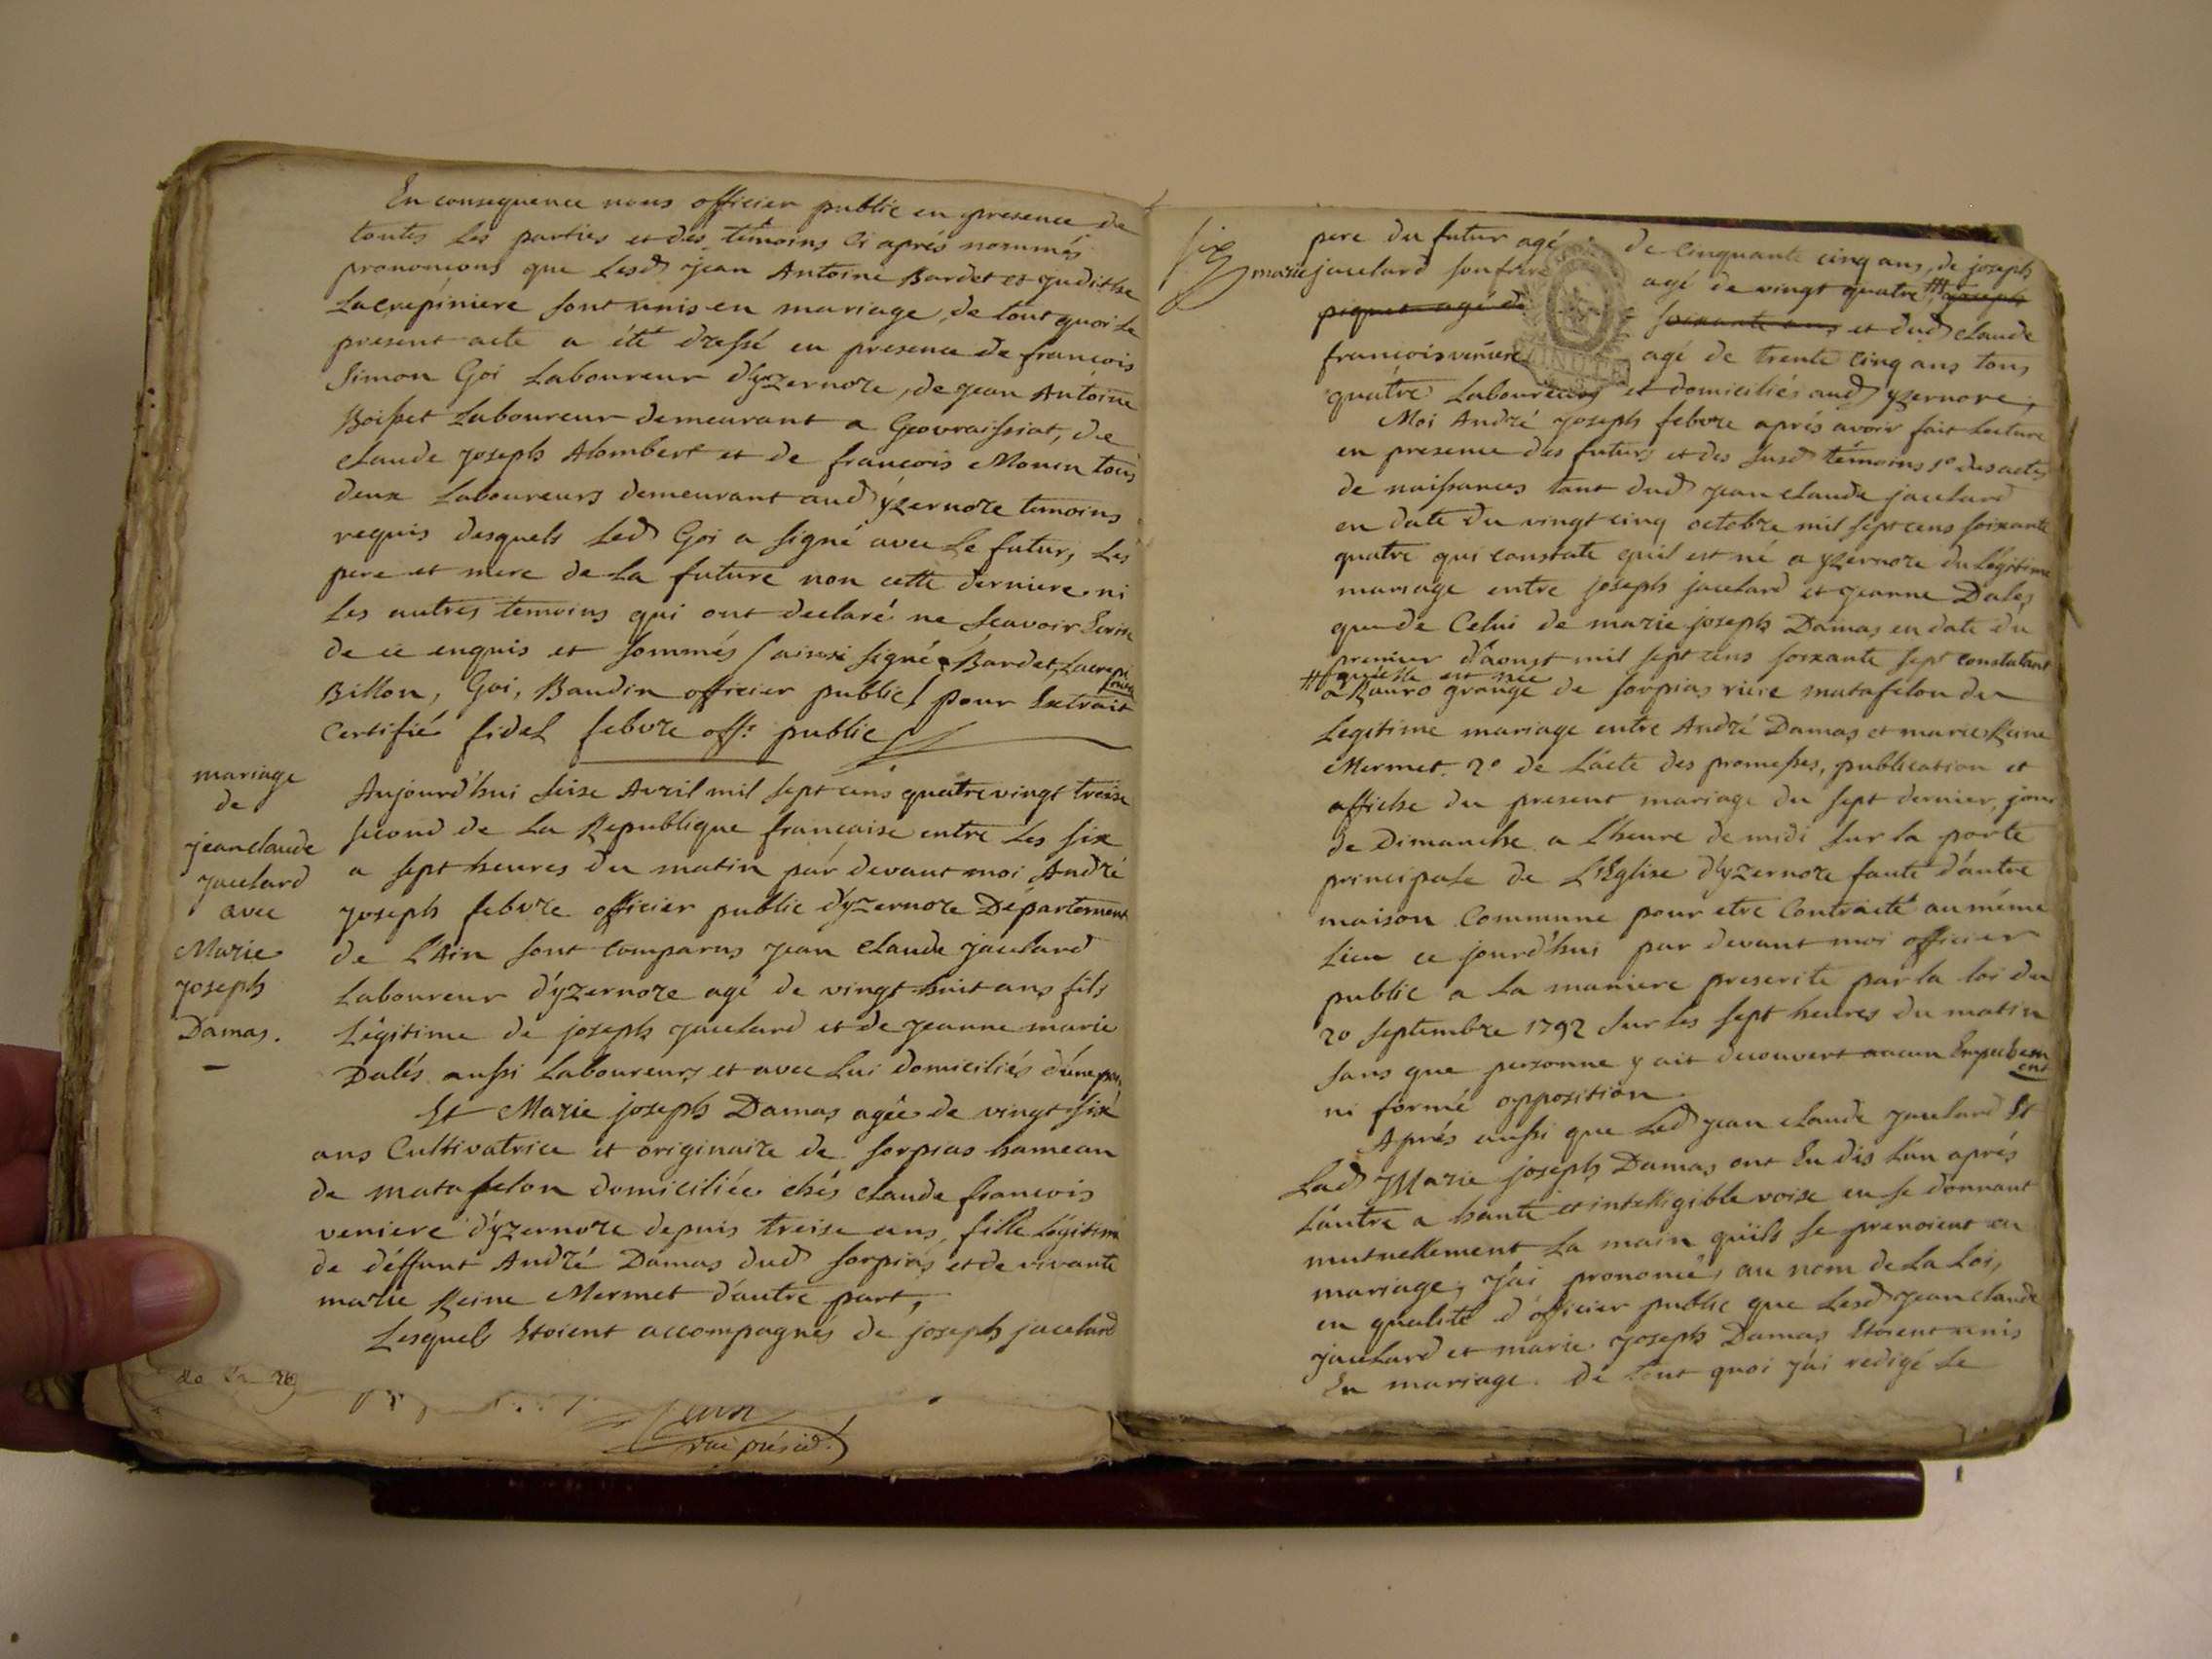 En consequence nous officier public en presence de
toutes les parties et des temoins ci aprés nommés
prononçons que lesd jean Antoine Bardet et judithe
Lacrepiniere sont unis en mariage, de tout quoi le
present acte a été dressé en presence de francois
Simon Goi Laboureur d'yzernore, de jean Antoine
Boisset Laboureur demeurant a Geovraissiat, de
claude joseph Alombert et de francois Monin tous
deux Laboureurs demeurant aud yzernore temoins
requis desquels led Goi a signé avec le futur, les
pere et mere de la future non cette derniere ni
les autres temoins qui ont declaré ne scavoir Ecrire
de ce enquis et sommés / ainsi signé Bardet, Lacrepi
Billon, Goi, Baudin officier public / pour Extrait
Certifié fidel febvre offr public
mariage
de
jean claude
jaculard
avec
Marie
joseph
Damas.
Aujourd'hui seise Avril mil sept cens quatrevingt treise
second de la Republique francaise entre les six
a sept heures du matin par devant moi André
joseph febvre officier public d'yzernore Département
de l'Ain sont comparus jean claude jaculard
Laboureur d'yzernore agé de vingt huit ans fils
Légitime de joseph jaculard et de jeanne marie
Dalés aussi Laboureurs et avec lui domiciliés d'une part
Et Marie joseph Damas agée de vingt six
ans Cultivatrice et originaire de sorpias hameau
de matafelon domiciliée chés claude francois
veniere d'yzernore depuis treise ans, fille légitime
de déffunt André Damas dud sorpias et de vivante
marie Reine Mermet d'autre part,
Lesquels Etoient accompagnés de joseph jaculard
six
pere du futur agé de cinquante cinq ans, de joseph
marie jaculard son frere agé de vingt quatre joseph
piquet agé de soixante ans et dud claude
francois veniere agé de trente cinq ans tous
quatre Laboureurs et domiciliés aud yzernore,
Moi André joseph febvre aprés avoir fait Lecture
en presence des futurs et des susd témoins 1º des actes
de naissances tant dud jean claude jaculard
en date du vingt cinq octobre mil sept cens soixante
quatre qui constate quil est né a yzernore du légitime
mariage entre joseph jaculard et jeanne Dales,
que de Celui de marie joseph Damas en date du
premier d'aoust mil sept cens soixante sept constatant
qu'elle est née
a Rauro grange de sorpias riere matafelon du
Legitime mariage entre André Damas et marie Reine
Mermet. 2º de l'acte des promesses, publication et
affiche du present mariage du sept dernier, jour
de Dimanche a l'heure de midi sur la porte
principale de l'Eglise d'yzernore faute d'autre
maison Commune pour etre Contracté au même
Lieu ce jourd'hui par devant moi officier
public a la maniere prescrite par la loi du
20 septembre 1792 sur les sept heures du matin
sans que personne y ait decouvert aucun Empechem
ent
ni formé opposition
Aprés aussi que led jean claude jaculard Et
Lad Marie joseph Damas ont Eu dis l'un aprés
l'autre a haute et intelligible voise en se donnant
mutuellement la main qu'ils se prenoient en
mariage, j'ai prononcé, au nom de la Loi,
en qualité d'officier public que lesd jean claude
jaculard et marie joseph Damas Etoient unis
En mariage. de tout quoi j'ai redigé le